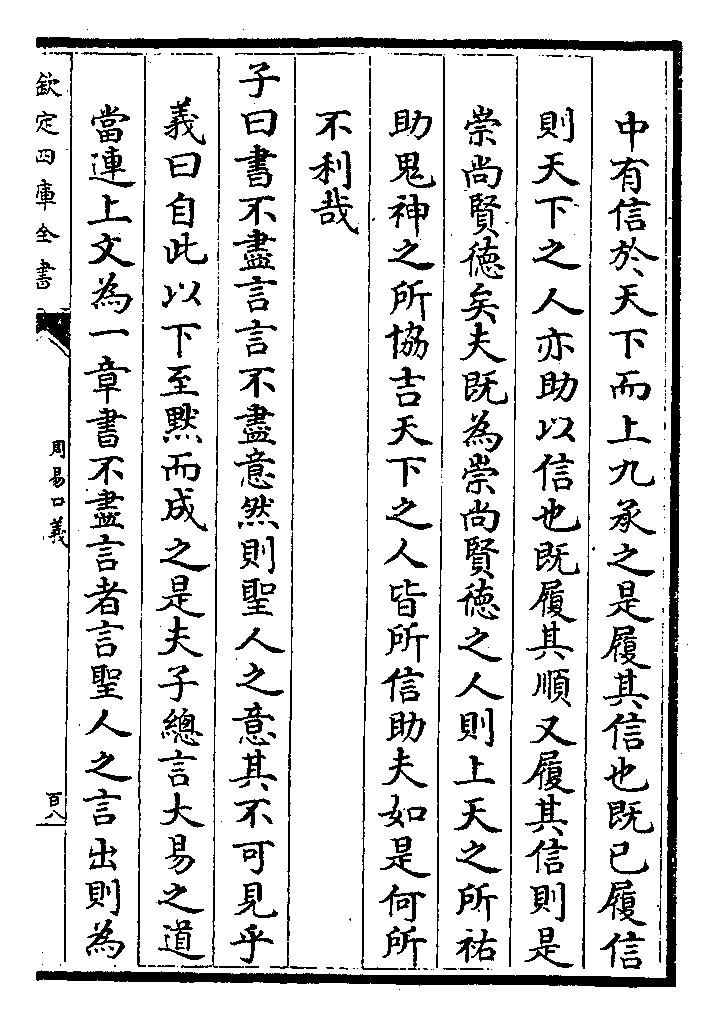 中有信於天下而上九承之是履其信也既已履信
則天下之人亦助以信也既履其順又履其信則是
崇尚賢德矣夫既為崇尚賢德之人則上天之所祐
助鬼神之所協吉天下之人皆所信助夫如是何所
不利哉
子曰書不盡言言不盡意然則聖人之意其不可見乎
義曰自此以下至黙而成之是夫子總言大易之道
當連上文為一章書不盡言者言聖人之言出則為
欽定四庫全書
周易口義
百八